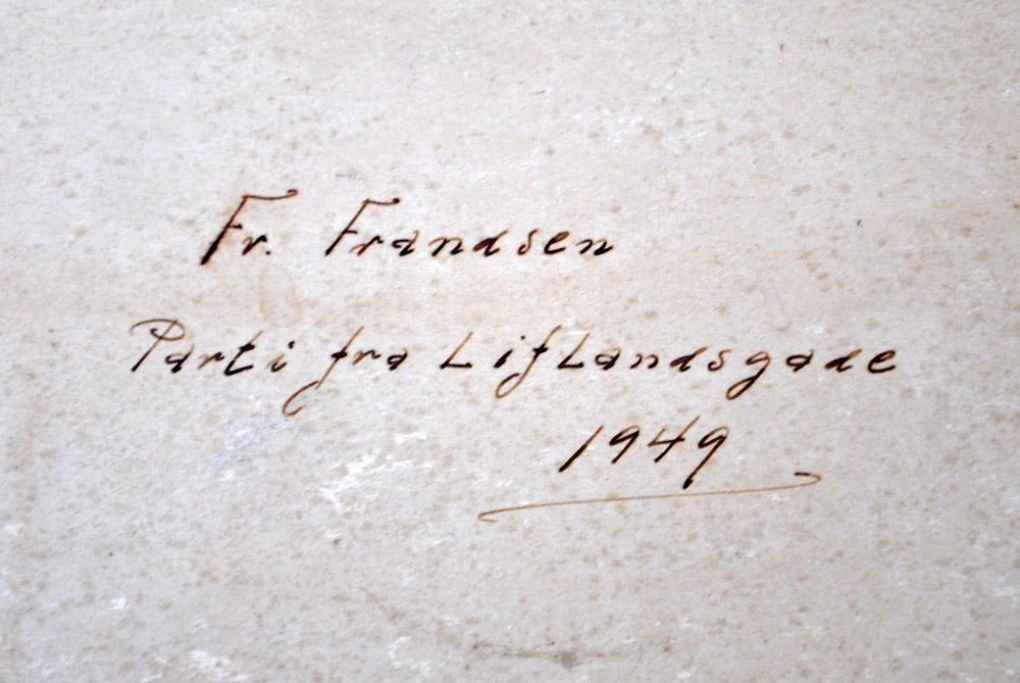 Fr. Frandsen
Parti fra Liflandsgade
1949